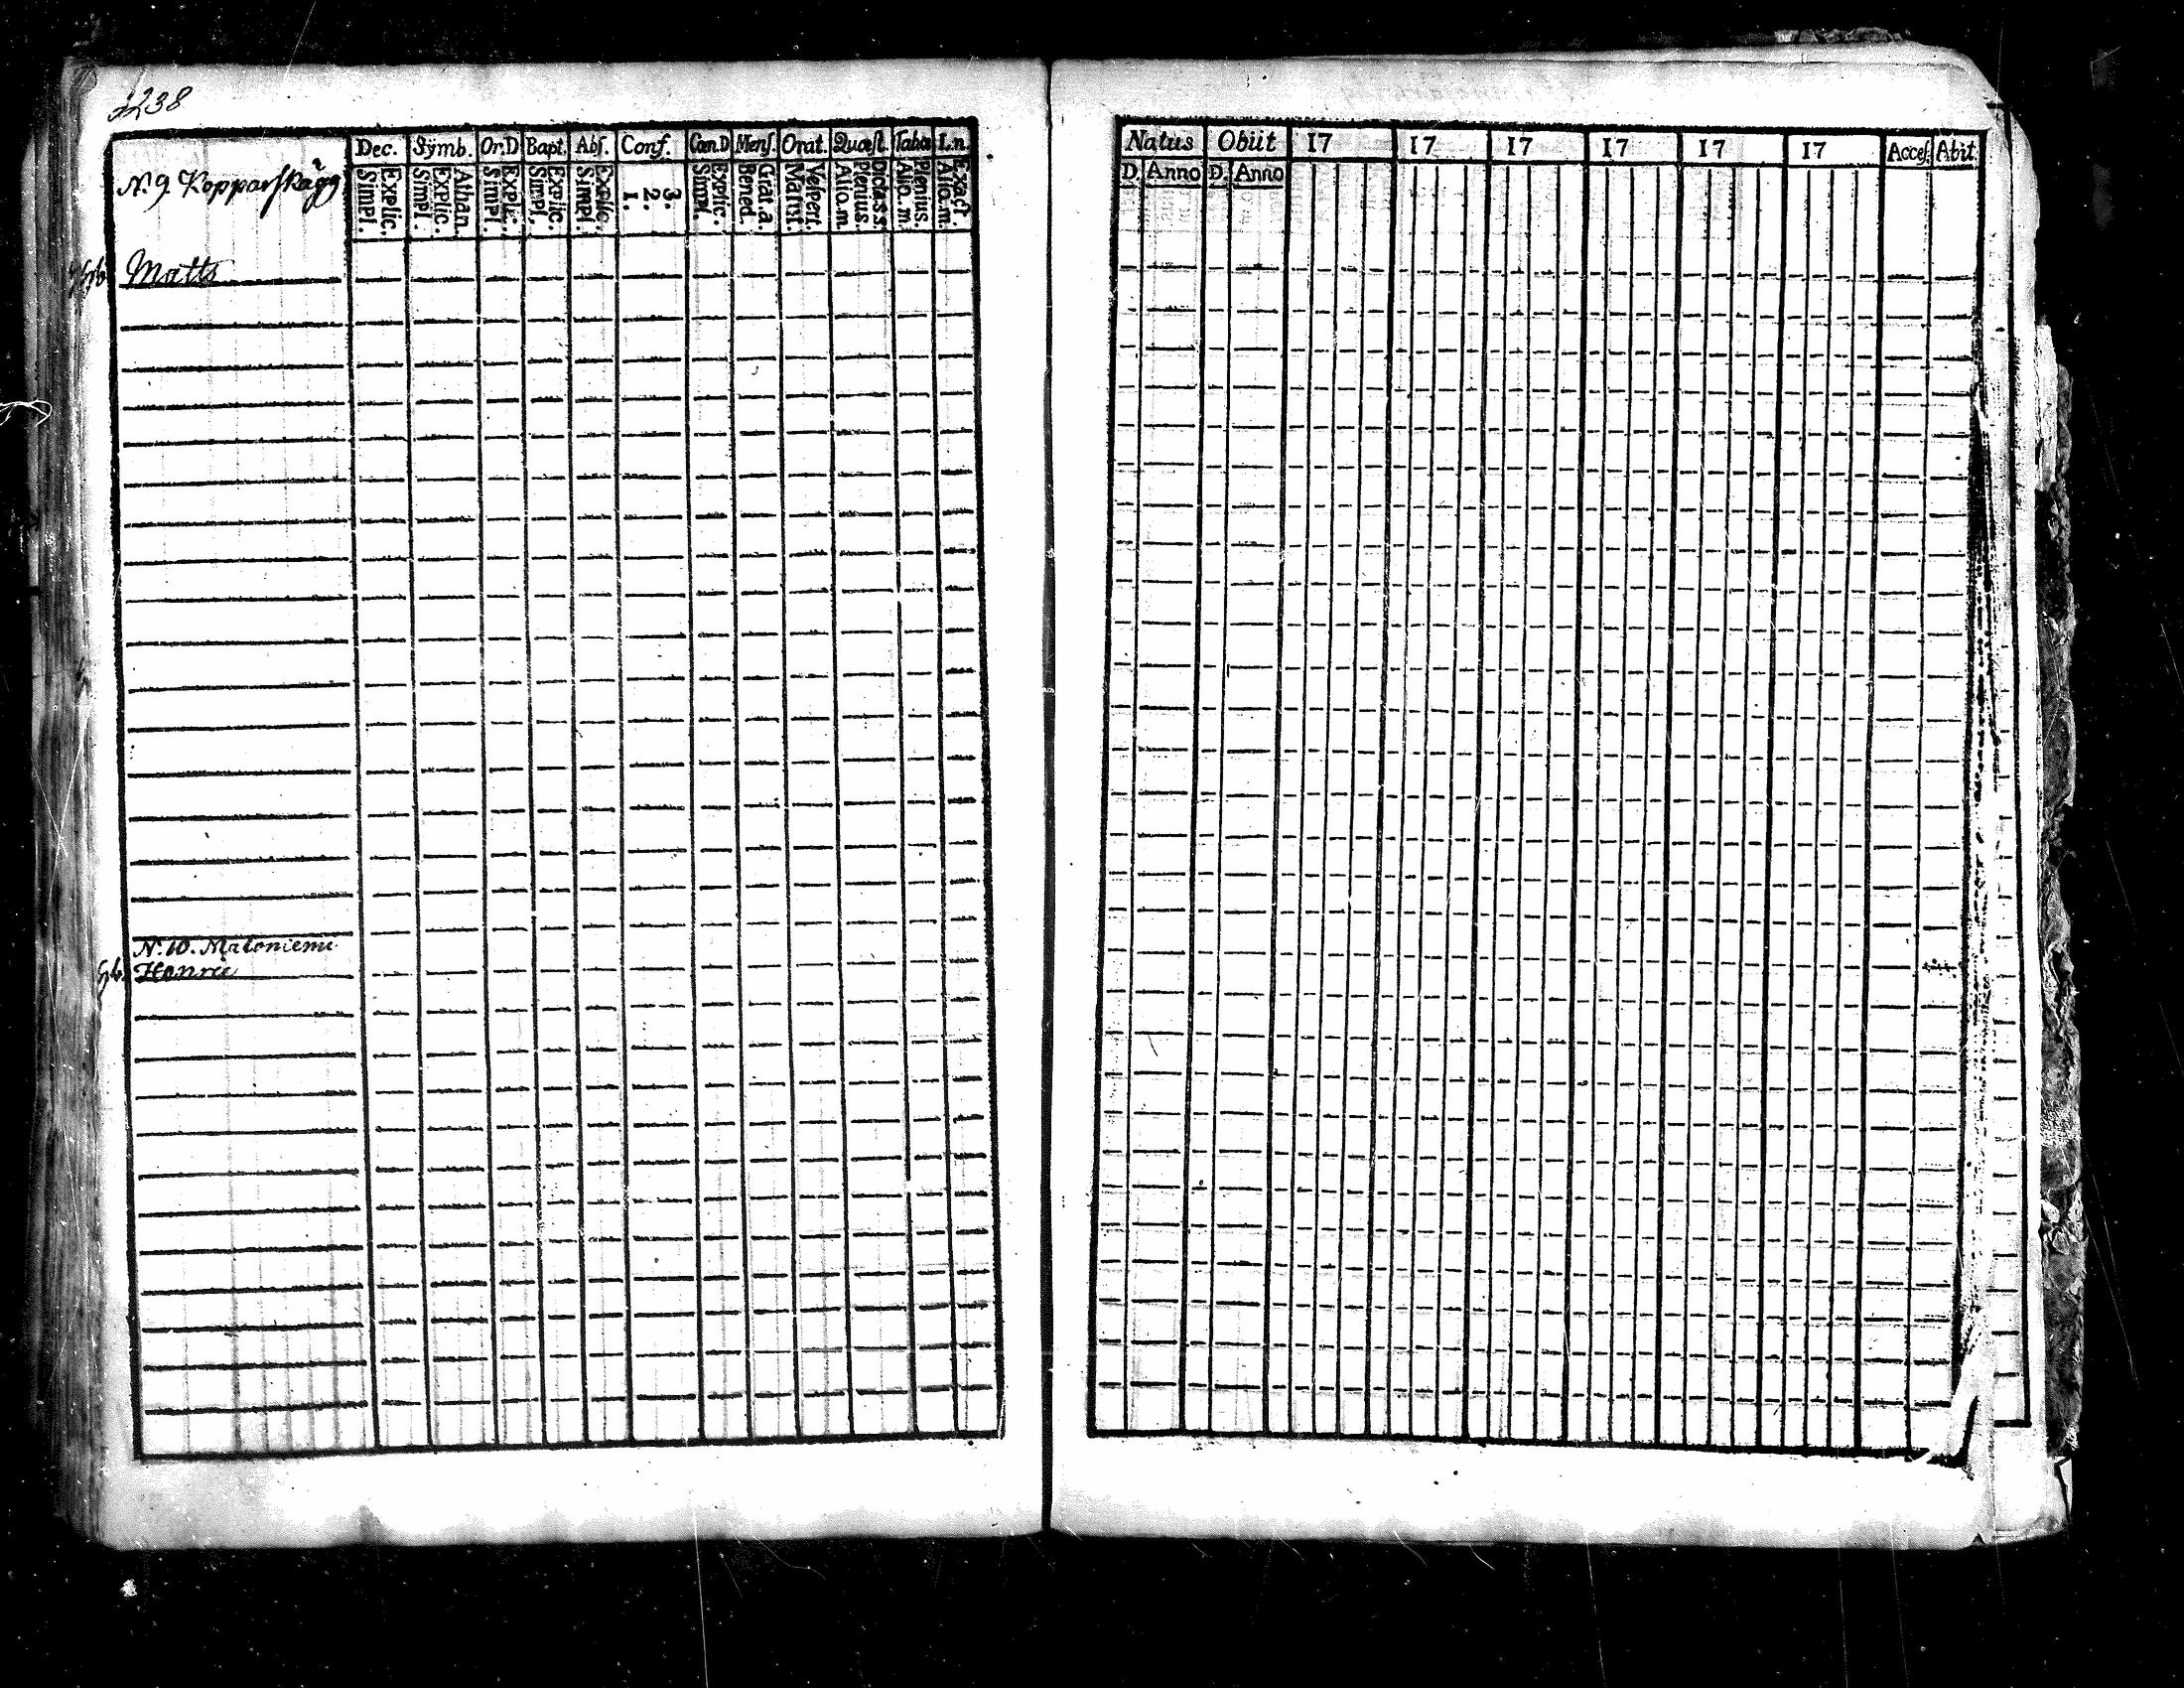 238
Dec. Symb. Or.D Bapt. Abs. Conf. Can.D Mens. Orat. Quæst. Taba L.n.
N:9 Kopparskägg
Explic. Simpl. Athan. Explic. Simpl. Explic. Simpl. Explic. Simpl. Explic. Simpl. 3. 2. 1. Explic. Simpl. Grat.a. Bened. Vespert. Matut. Dictas.s. Plenius. Alio.m. Plenius. Alio.m Exact. Alio.m
Matts
N:10. Matoniemi
Henric
Natus Obiit 17 17 17 17 17 17 Acces. Abit.
D. Anno D. Anno